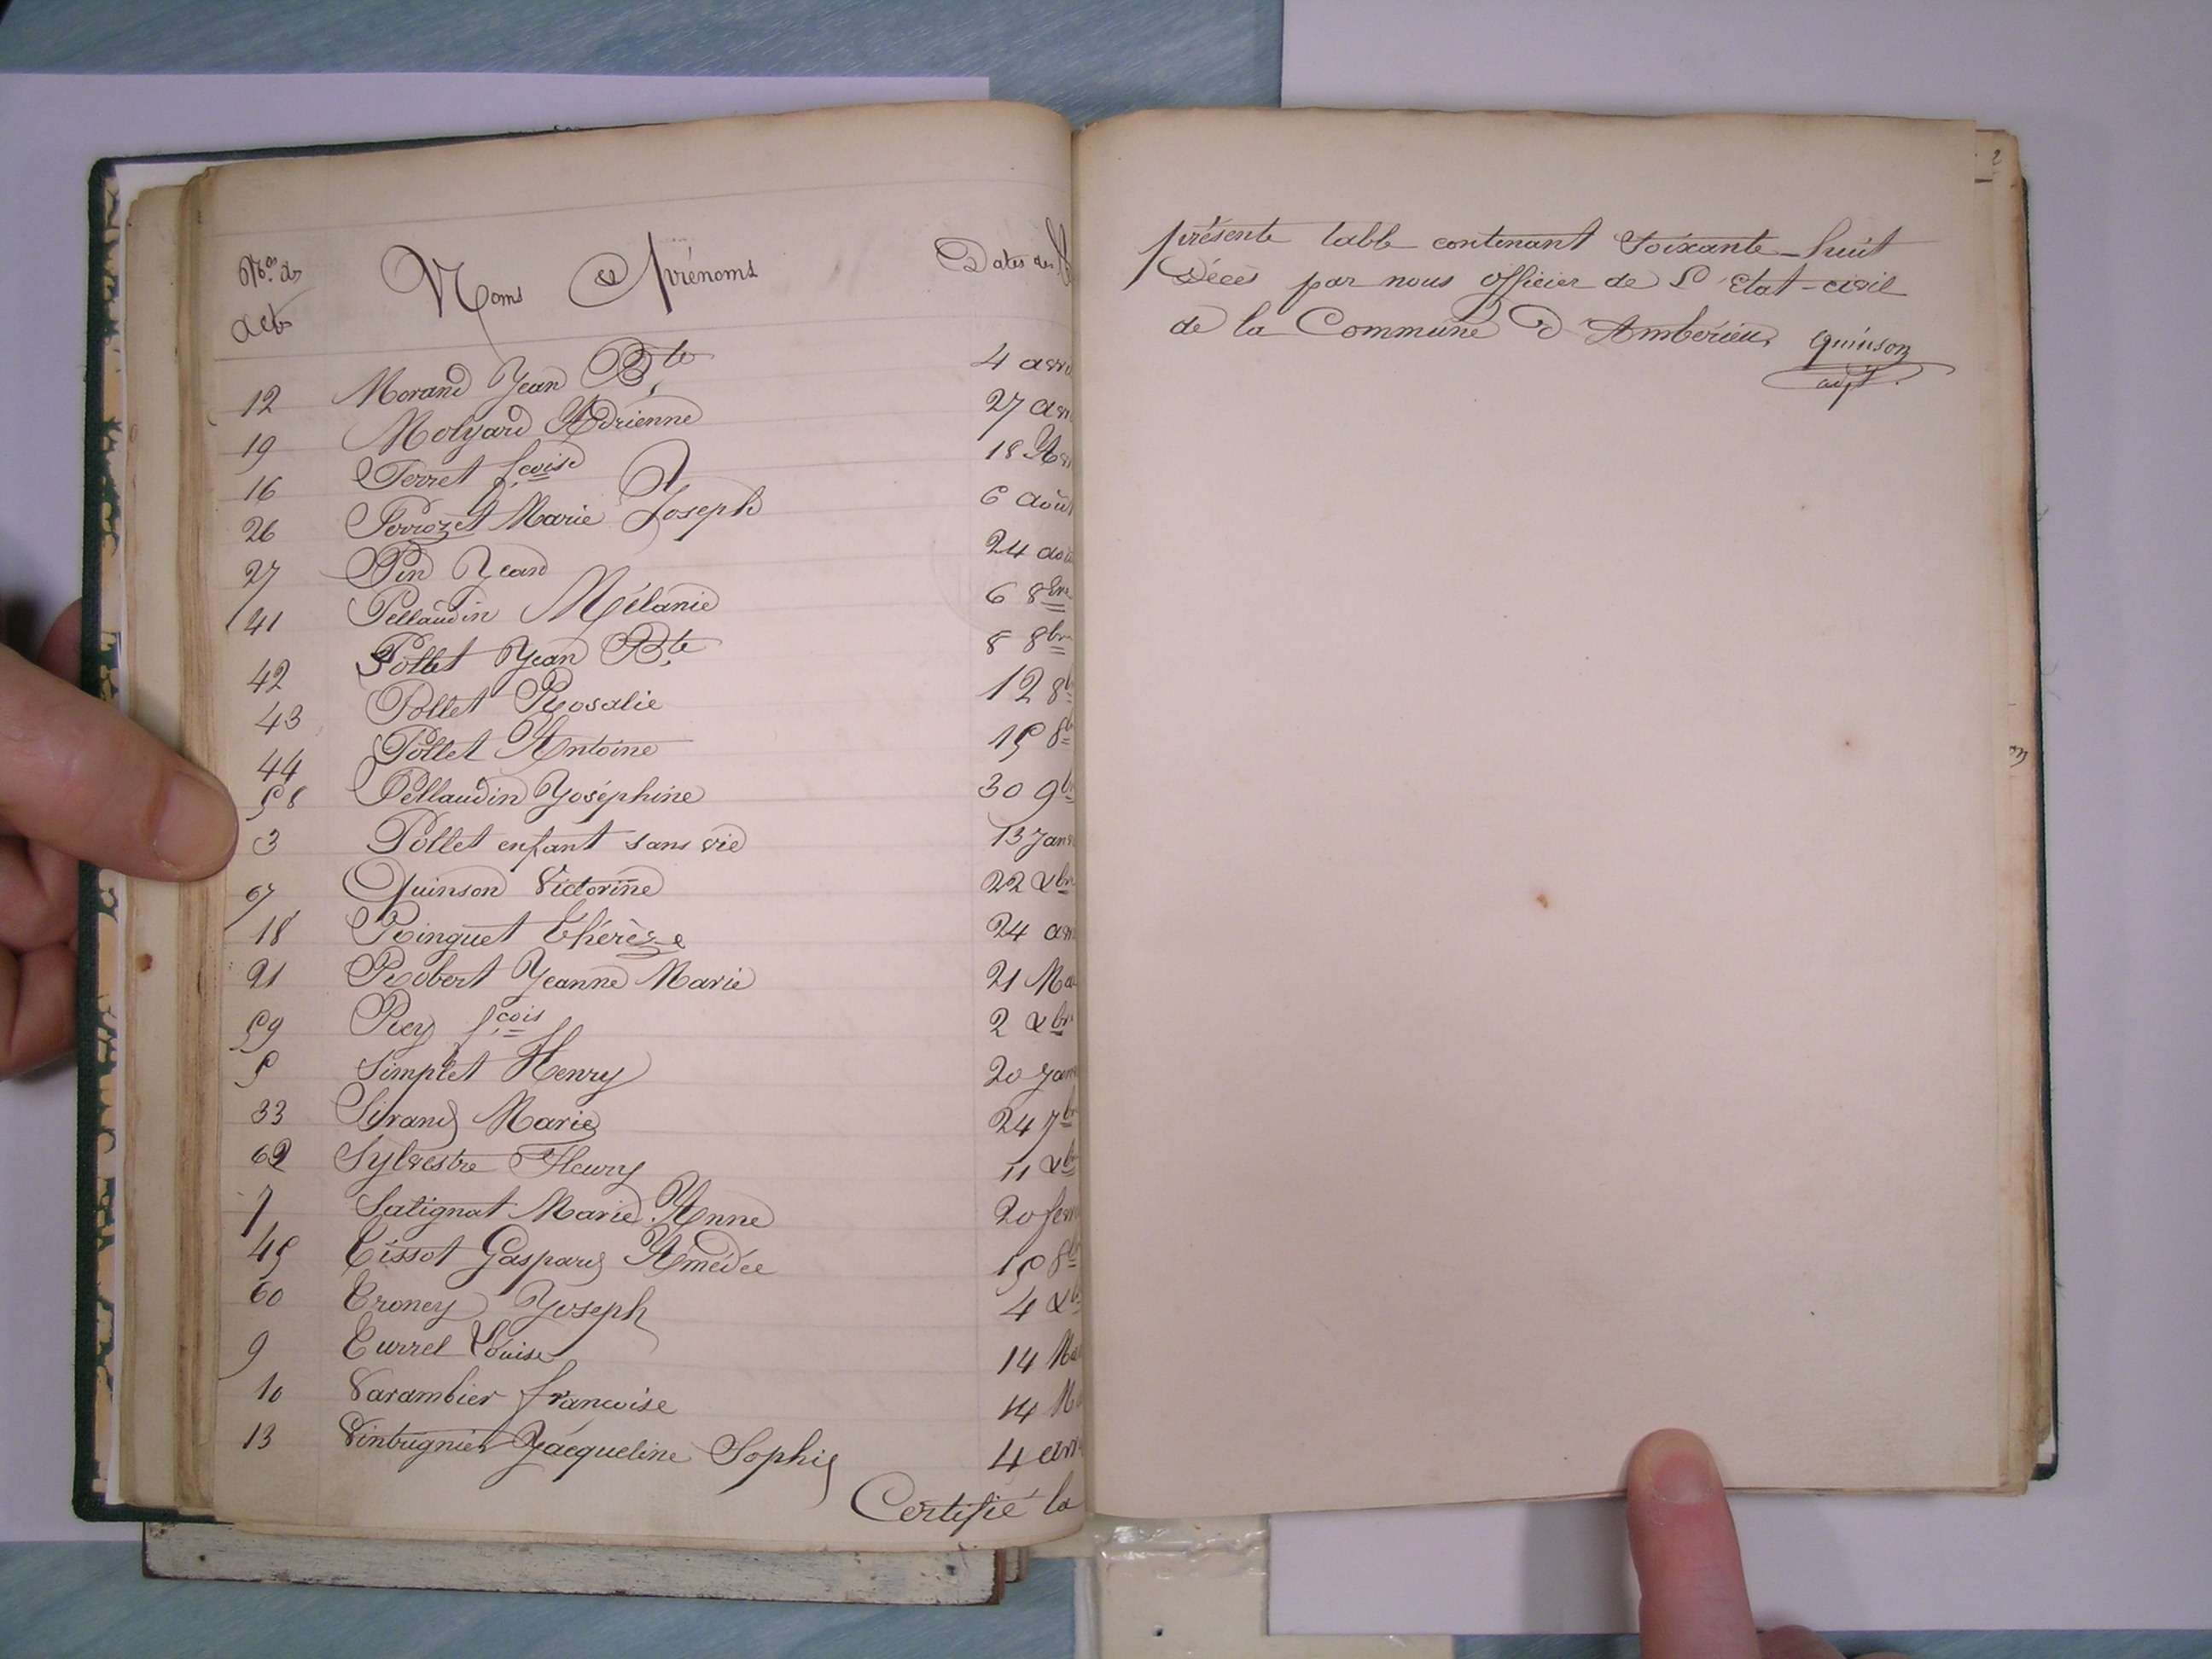 Nos. des actes Noms & Prénoms Dates des
12 Morand Jean Bte 4 avri
19 Molyard Adrienne 27 avr
16 Perret fçoise 18 Avr
26 Perrozet Marie Joseph 6 août
27 Pin Jean 24 aoû
41 Pellaudin Mélanie 6 8bre
42 Pollet Jean Bte 8 8bre
43 Pollet Rosalie 12 8b
44 Pollet Antoine 15 8b
58 Pellaudin Joséphine 30 9br
3 Pollet enfant sans vie 13 Janv
67 Quinson Victorine 22 Xbr
18 Ringuet Thérèse 24 avr
21 Robert Jeanne Marie 21 Ma
59 Rey fçois 2 Xbr
5 Simplet Henry 20 Janv
33 Sirand Marie 24 7br
62 Sylvestre Fleury 11 Xb
7 Salignat Marie Anne 20 fevr
45 Tissot Gaspard Amédée 15 8b
60 Troney Joseph 4 Xb
9 Turrel Louise 14 Ma
10 Varambier françoise 14 M
13 Vintrignier Jacqueline Sophie 4 avr
Certifié la
présente table contenant Soixante-huit
Décès par nous officier de l'Etat-civil
de la Commune d'Ambérieu, Quinson
adjt.